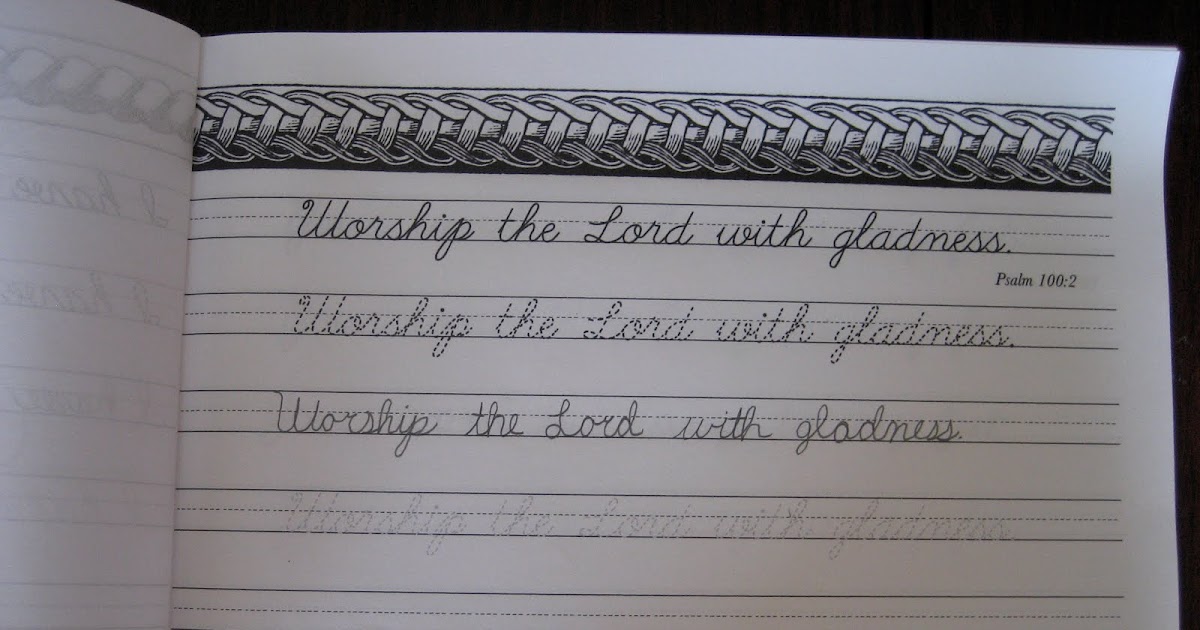 Worship the Lord with gladness.
Psalm 100:2
Worship the Lord with gladness.
Worship the Lord with gladness.
Worship the Lord with gladness.
I have
I have